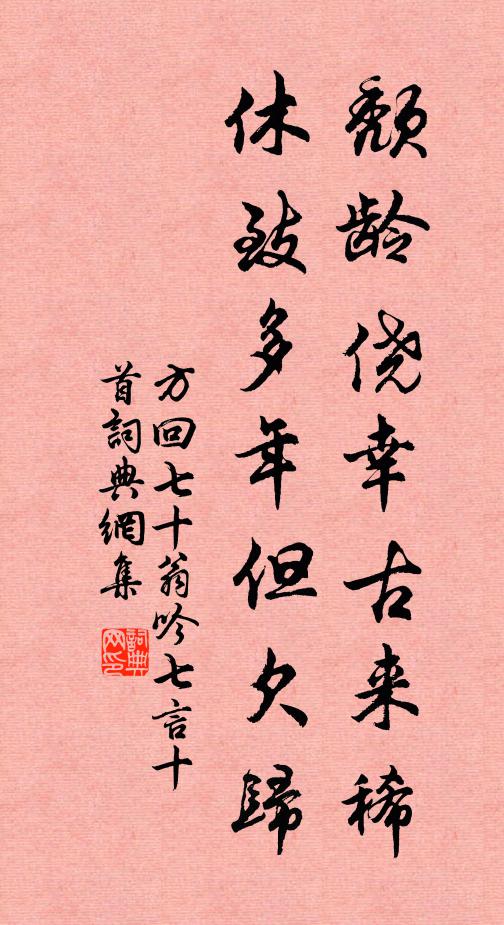 颓龄侥幸古来稀
休致多年但欠歸
方回七十翁吟七言十
首詞典網集
詞典网印